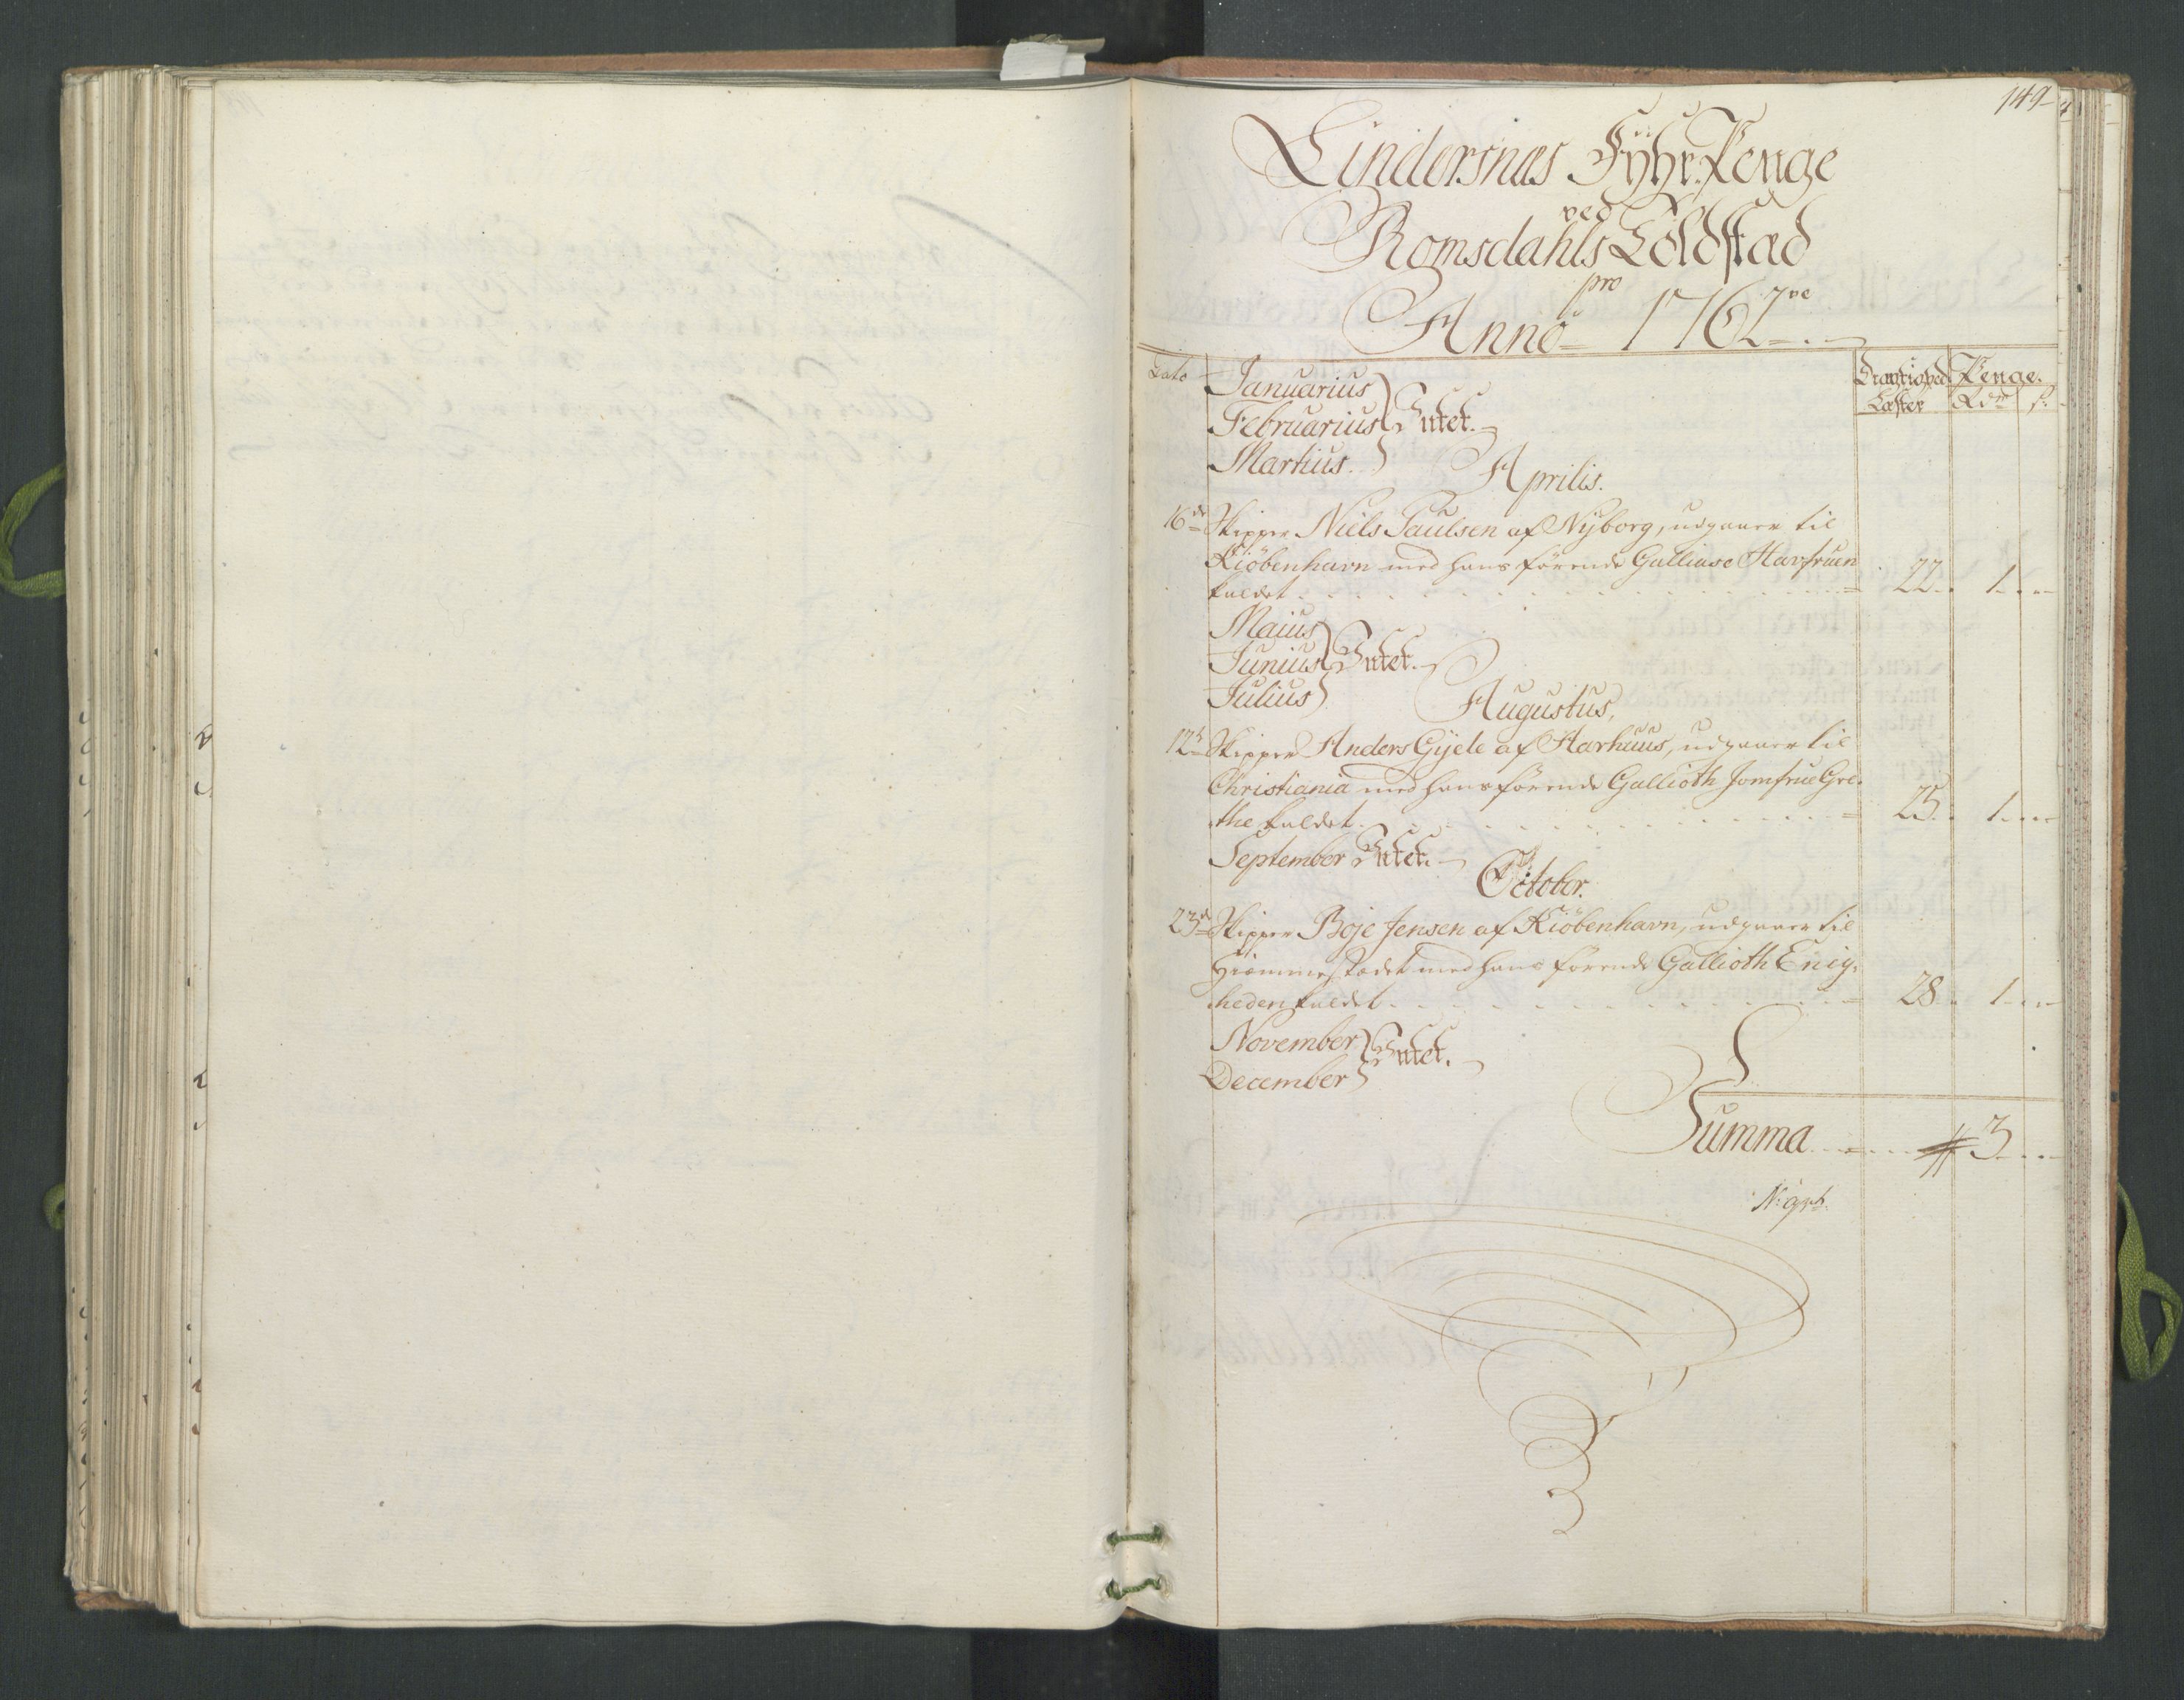 149
Lindersnæs Fÿhr-Penge
ved
Romsdahls Toldsted
pro
Anno 1762
Dato
Drægtighed Penge.
Læster Rdr s:
Januarius
Februarius Intet.
Martius.
Aprilis.
16de Skipper Niels Paulsen af Nyborg, udgaaer til
Kiöbenhavn med hans förende Galliase Havfruen
kaldet 22 1
Maius
Junius Intet.
Julius
Augustus,
12te Skipper Anders Gÿele af Aarhuus, udgaaer til
Christiania med hans förende Gallioth Jomfrue Gre-
the kaldet 25 1
September Intet.
October.
23de Skipper Boje Jensen af Kiöbenhavn, udgaaer til
Hiemmestædet med hans förende Gallioth Enig-
heden kaldet 28 1
November Intet.
December
Summa 3